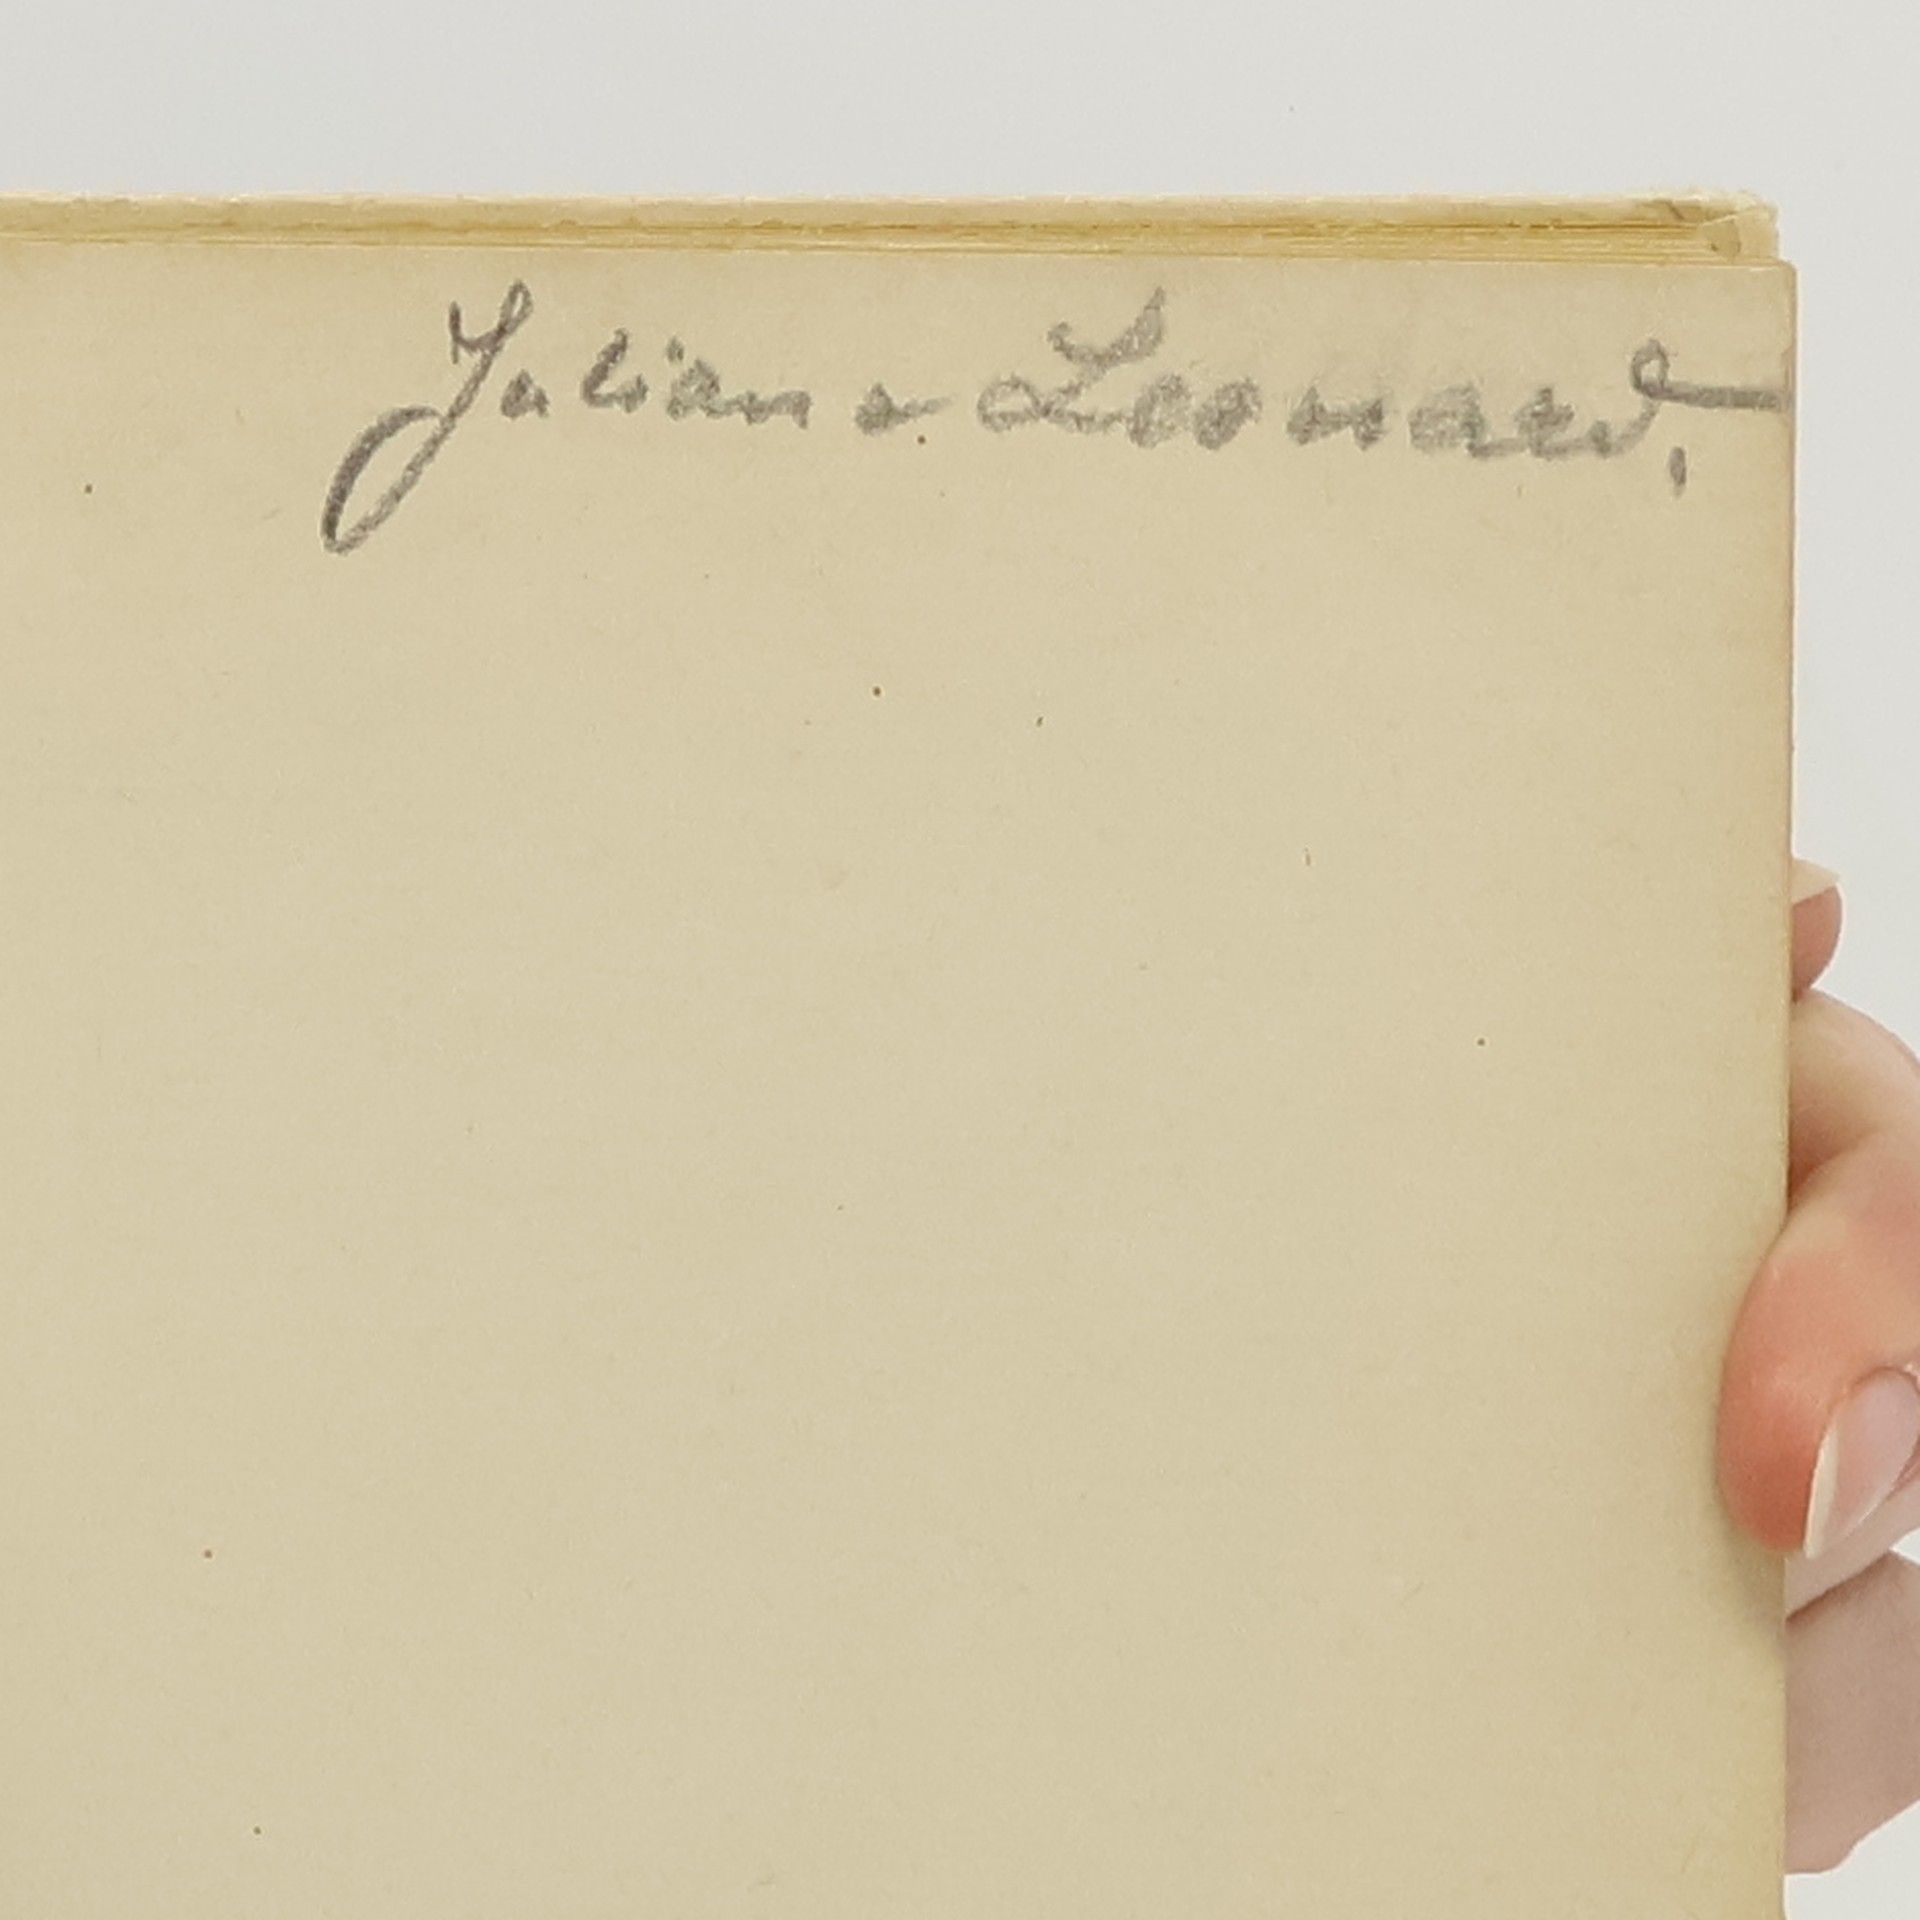 Julian v Leonard,